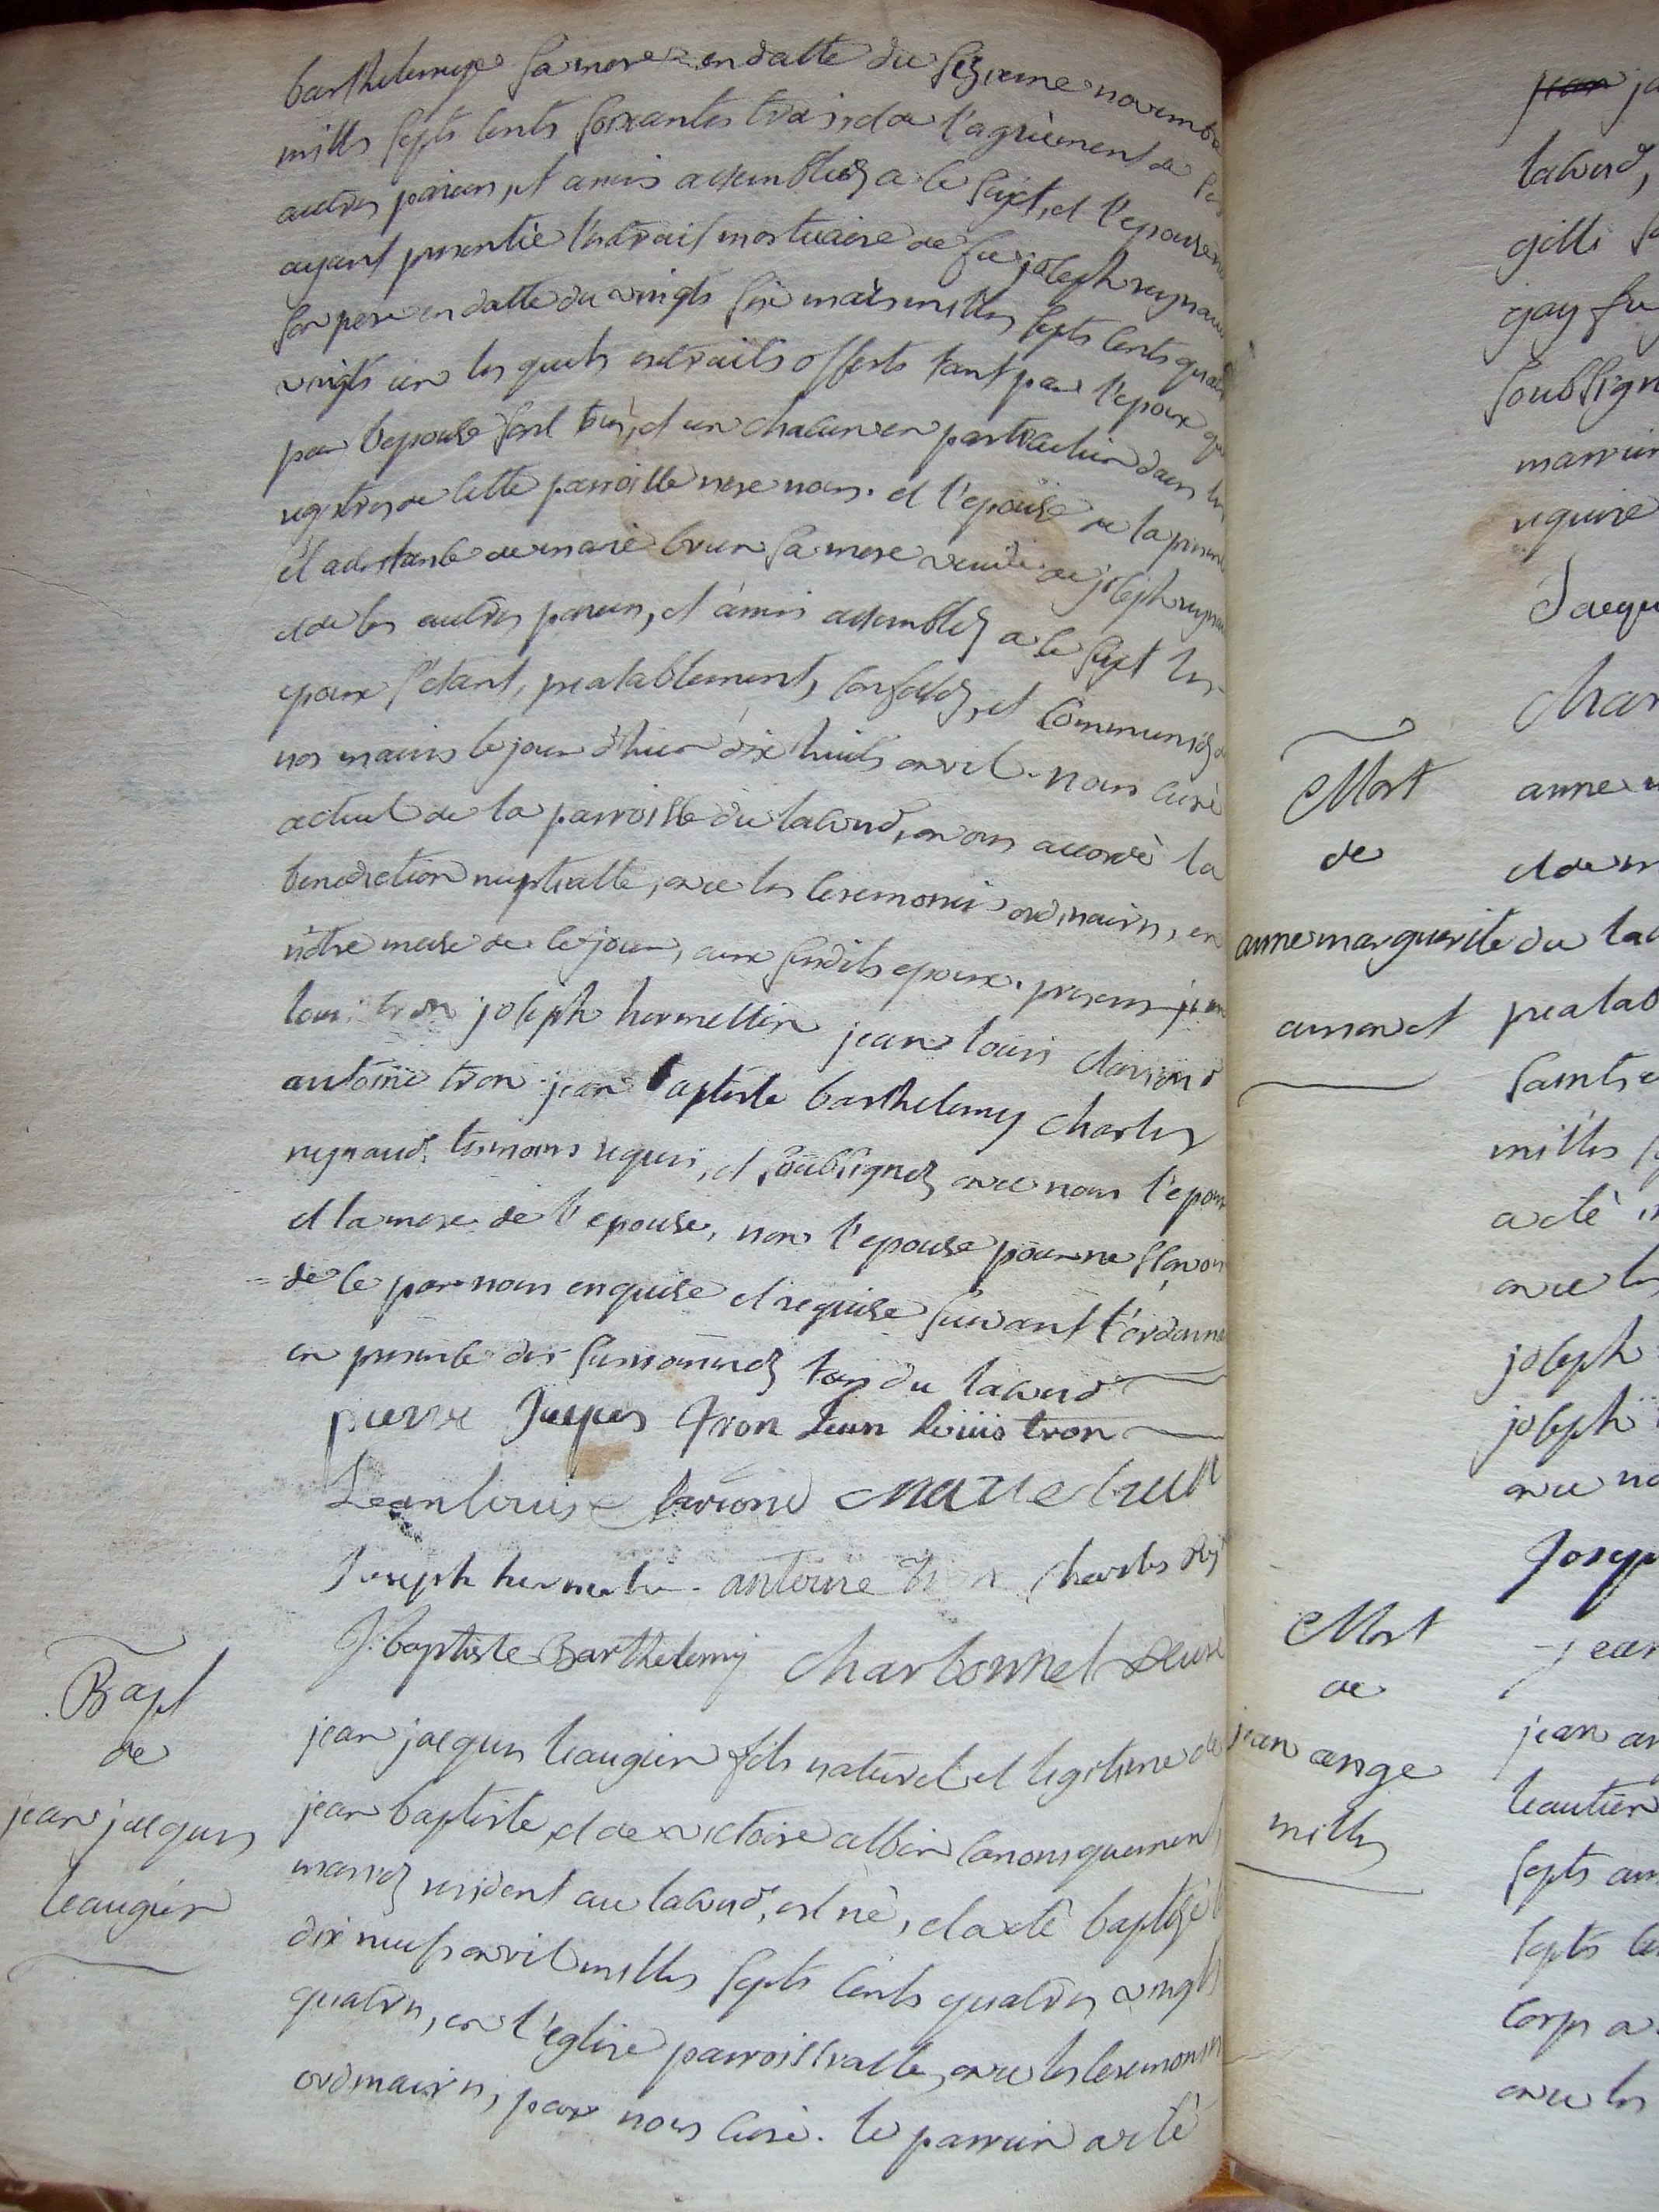 barthelemye sa mere en datte du sizieme novembre
milles septs cents soixantes trois, de l'agrèement de ses
autres parens, et amis assemblez a ce sujet, et l'epouse
ayant presentée l'extrait mortuaire de feu joseph reynaud
son pere en datte du vingts six mai milles septs cents quatres
vingts un les quels extraits offerts tant par l'epoux que
par l'epouse sont tirés, et un chacun en particulier dans les
registres de cette parroisse vere nous. et l'epouse de la presence
et adsistance de marie brun sa mere veuve de joseph reynaud
et de ses autres parens, et amis assemblez a ce sujet les
epoux s'etant, prealablement, confessez, et communiez de
nos mains le jour d'hier dix huits avril. nous curé
actuel de la parroisse du laverd, avons accordé la
benediction nuptialle, avec les ceremonies ordinaires, en
nôtre messe de ce jour, aux susdits epoux. presens jean
louis tron joseph hermellin jean louis clariond
antoine tron jean baptiste barthelemy charles
reynaud. temoins requis, et soubsignez avec nous l'epoux
et la mere de l'epouse, non l'epouse pour ne sçavoir
de ce par nous enquise et requise suivant l'ordonnance
en presence des susnommez tous du laverd
pierre Jaques tron Jean louis tron
Jean louis clariond marie brun
Joseph hermelin antoine tron charles Rey
J: baptiste Barthelemy Charbonnel curé
Bapt
de
jean jacques
leaugier
jean jacques leaugier fils naturel et legitime de
jean baptiste, et de victoire albin canoniquement
mariez resident au laverd, est né, et a eté baptizé le
dix neufs avril milles septs cents quatres vingts
quatres, en l'eglise parroissialle, avec les ceremonies
ordinaires, par nous curé. le parrain a eté
jean
laverd,
gilli
gay fu
soubsign
marrain
requise
Jacque
Char
Mort
de
anne marguerite
arnaud
anne m
et de m
du lav
prealab
saints
milles
a eté in
avec les
joseph
joseph
avec no
Joseph
Mort
de
jean ange
milles
jean
jean an
leautier
septs an
septs ce
corps a
avec les